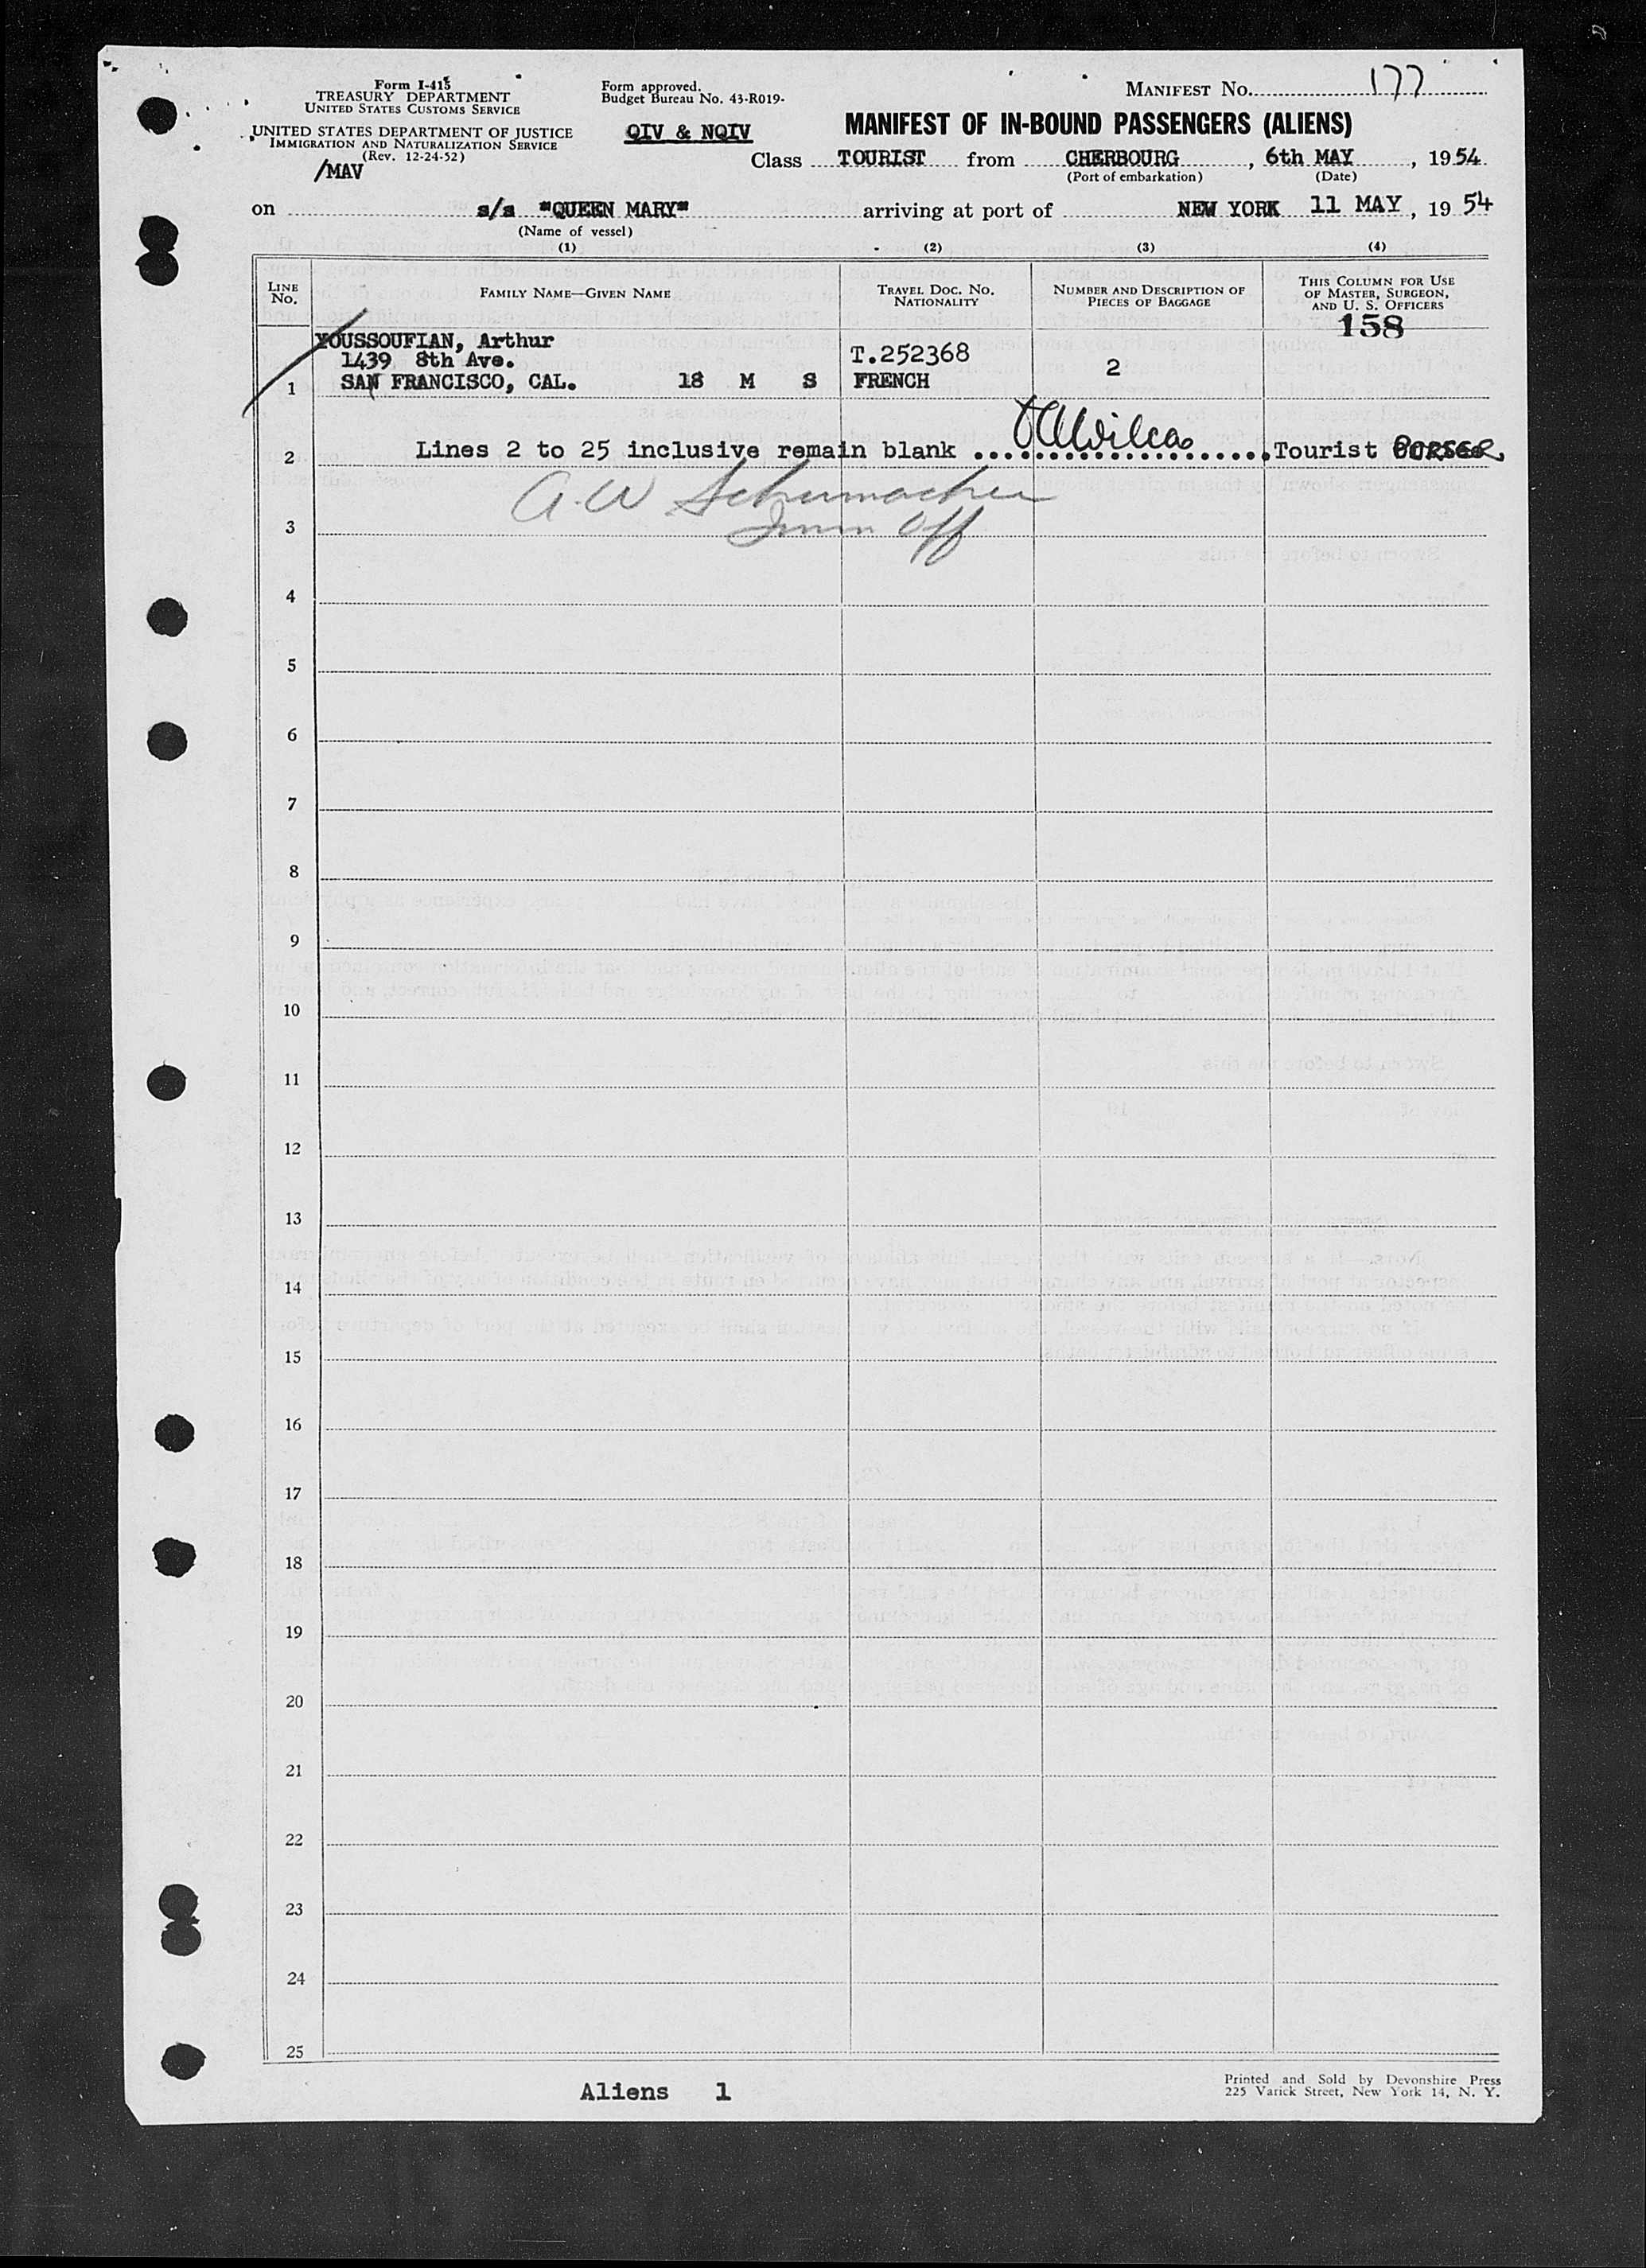 Form I-415
TREASURY DEPARTMENT
UNITED STATES CUSTOMS SERVICE
UNITED STATES DEPARTMENT OF JUSTICE
IMMIGRATION AND NATURALIZATION SERVICE
(Rev. 12-24-52)
/MAV
Form approved.
Budget Bureau No. 43-R019-
QIV & NQIV
MANIFEST NO. 177
MANIFEST OF IN-BOUND PASSENGERS (ALIENS)
Class TOURIST from CHERBOURG, 6th MAY, 1954
(Port of embarkation) (Date)
on s/s "QUEEN MARY" arriving at port of NEW YORK 11 MAY, 1954
(Name of vessel)
(1) (2) (3) (4)
LINE NO.
FAMILY NAME—GIVEN NAME
TRAVEL DOC. NO. NATIONALITY
NUMBER AND DESCRIPTION OF PIECES OF BAGGAGE
THIS COLUMN FOR USE OF MASTER, SURGEON, AND U. S. OFFICERS
158
YOUSSOUFIAN, Arthur
1439 8th Ave. T.252368 2
1 SAN FRANCISCO, CAL. 18 M S FRENCH
2 Lines 2 to 25 inclusive remain blank .................... Tourist PURSER
A. W Schumacher
3 Imm Off
4
5
6
7
8
9
10
11
12
13
14
15
16
17
18
19
20
21
22
23
24
25
Aliens 1
Printed and Sold by Devonshire Press
225 Varick Street, New York 14, N. Y.